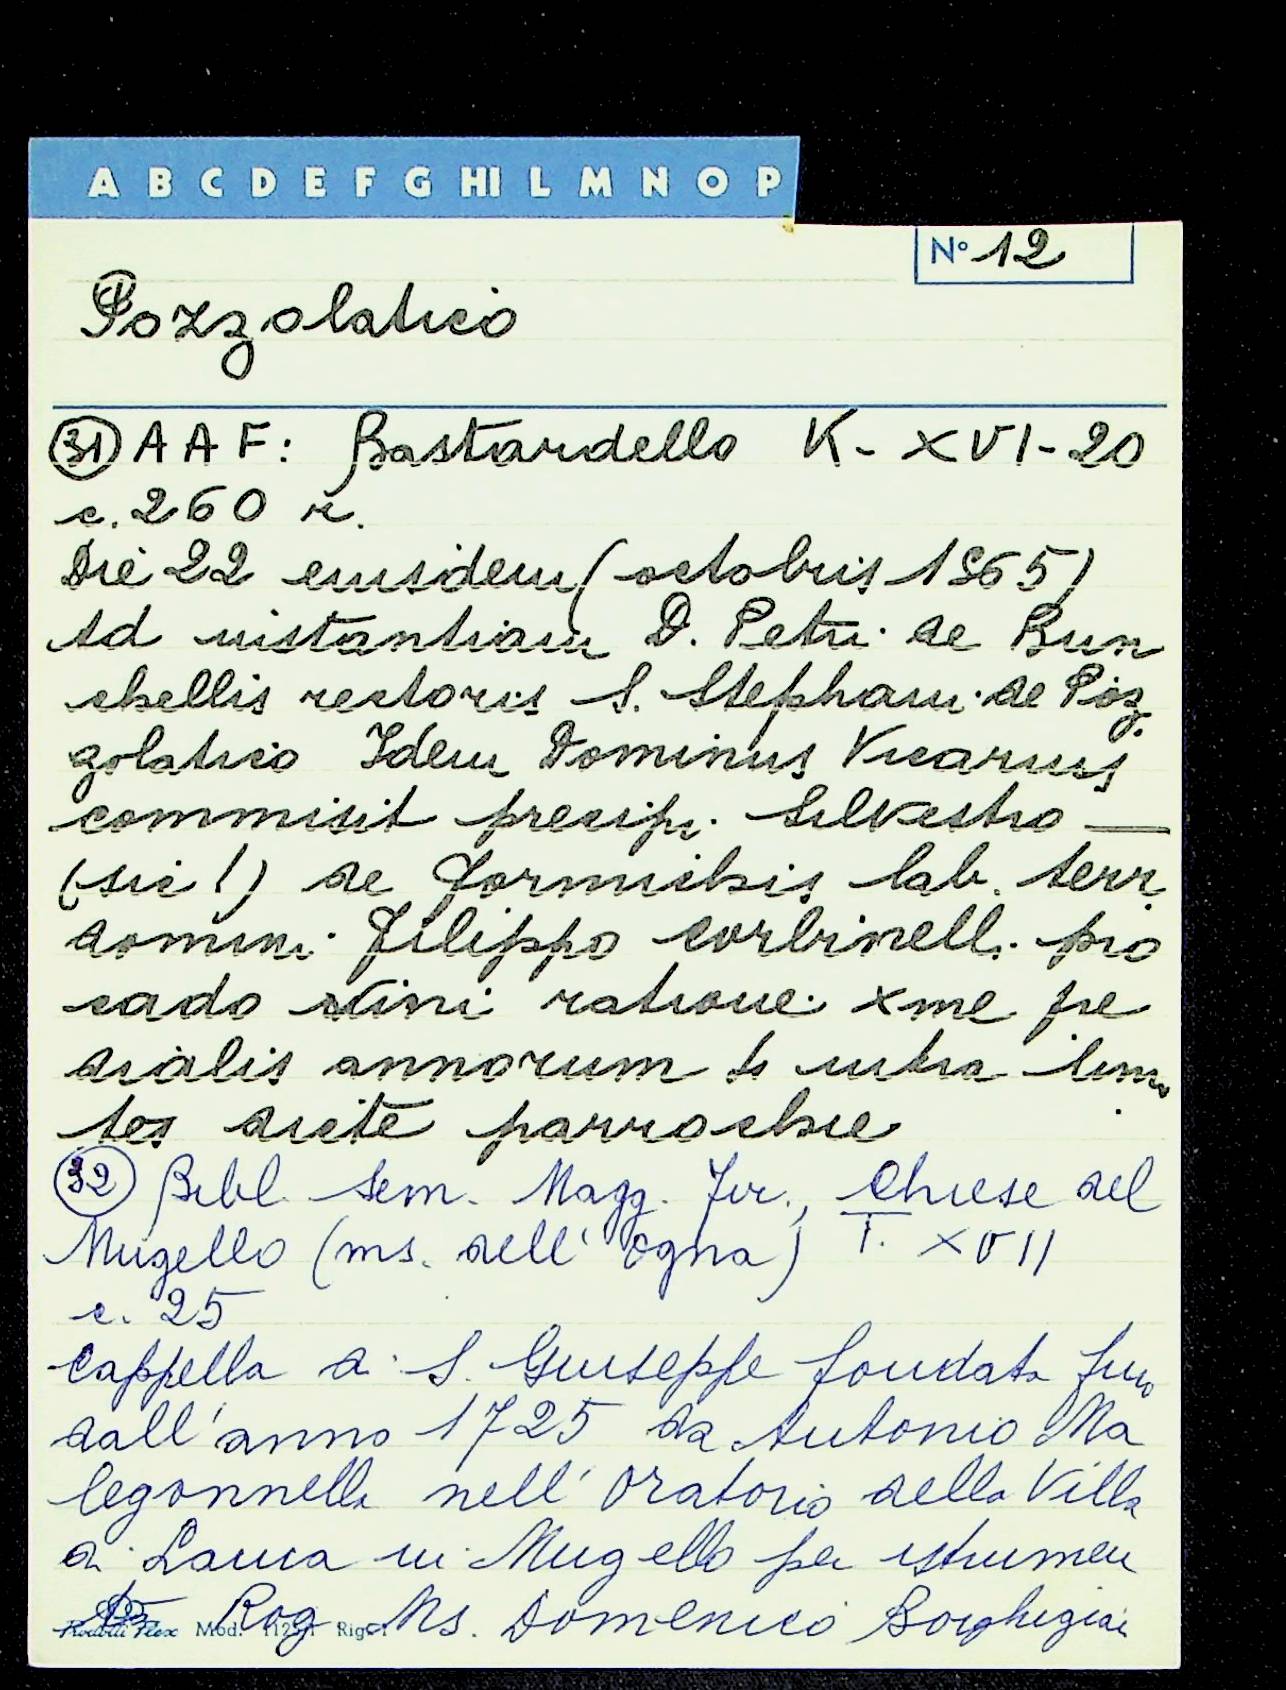 A B C D E F G HI L M N O P
N° 12
Pozzolatico
31 A A F: Bastardello K - XVI - 20
c. 260 r.
Die 22 eiusidem (octobris 1565)
Ad instantiam D. Petri de Bun
chellis rectoris S. Stephani de Poz
zolatico Idem Dominus Vicarius
commisit precipi Silvestro —
(sic!) de Formichis lab. terr.
domini Filippo Corbinelli pro
cado vini ratione xme pre
dialis annorum 6 intra limi
tes dicte parrochie
32 Bibl. Sem. Magg. Fir., Chiese del
Mugello (ms. dell' Ogna) T. XVII
c. 25
Cappella di S. Giuseppe fondata fino
dall'anno 1725 da Antonio Ma
legonnelle nell' Oratorio della Villa
di Lauca in Mugello per istrumen
to Rog. Ms. Domenico Borghigiai
Mod. Rig.